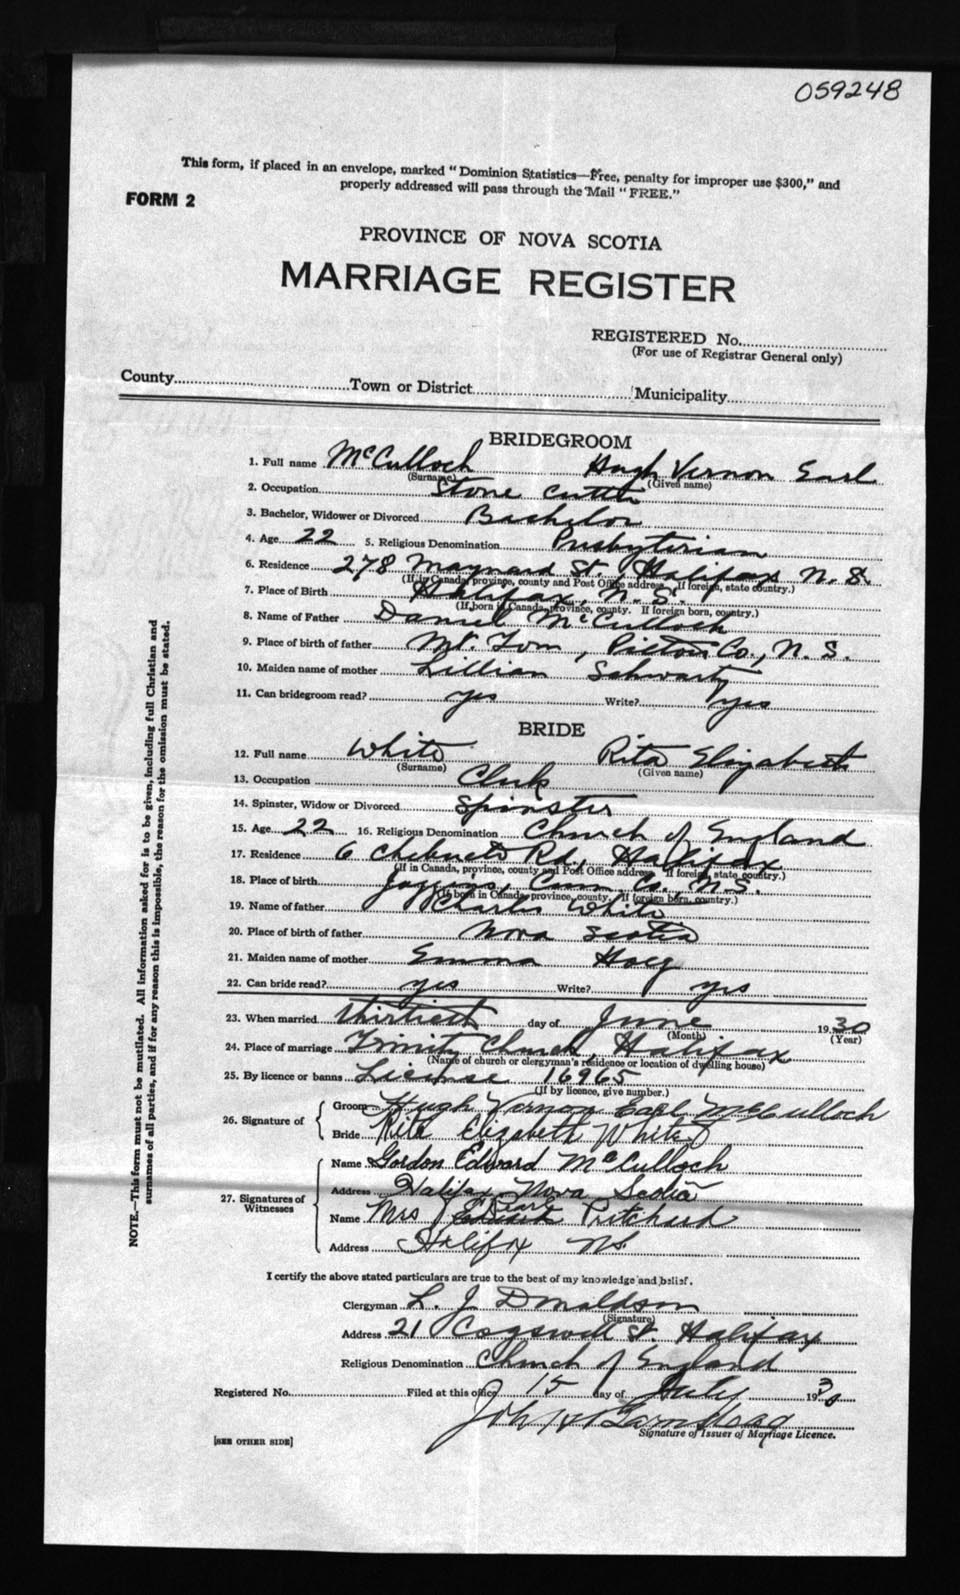 059248
This form, if placed in an envelope, marked "Dominion Statistics—Free, penalty for improper use $300," and
properly addressed will pass through the Mail "FREE."
FORM 2
PROVINCE OF NOVA SCOTIA
MARRIAGE REGISTER
REGISTERED No.
(For use of Registrar General only)
County Town or District Municipality
BRIDEGROOM
1. Full name McCulloch Hugh Vernon Earl
(Surname) (Given name)
2. Occupation Stone Cutter
3. Bachelor, Widower or Divorced Bachelor
4. Age 22 5. Religious Denomination Presbyterian
6. Residence 278 Maynard St. Halifax N.S.
(If in Canada, province, county and Post Office address. If foreign, state country.)
7. Place of Birth Halifax, N.S.
(If born in Canada, province, county. If foreign born, country.)
8. Name of Father Daniel McCulloch
9. Place of birth of father Mt. Tom, Pictou Co., N.S.
10. Maiden name of mother Lillian Schwartz
11. Can bridegroom read? yes Write? yes
BRIDE
12. Full name White Rita Elizabeth
(Surname) (Given name)
13. Occupation Clerk
14. Spinster, Widow or Divorced Spinster
15. Age 22 16. Religious Denomination Church of England
17. Residence 6 Chebucto Rd, Halifax
(If in Canada, province, county and Post Office address. If foreign, state country.)
18. Place of birth Joggins, Cum Co., N.S.
(If born in Canada, province, county. If foreign born, country.)
19. Name of father Charles White
20. Place of birth of father Nova Scotia
21. Maiden name of mother Emma Hoeg
22. Can bride read? yes Write? yes
23. When married thirtieth day of June 1930
(Month) (Year)
24. Place of marriage Trinity Church, Halifax
(Name of church or clergyman's residence or location of dwelling house)
25. By licence or banns License 16965
(If by licence, give number.)
26. Signature of Groom Hugh Vernon Earl McCulloch
Bride Rita Elizabeth White
27. Signatures of Witnesses Name Gordon Edward McCulloch
Address Halifax Nova Scotia
Name Mrs J Pritchard
Address Halifax NS
I certify the above stated particulars are true to the best of my knowledge and belief.
Clergyman L. J. Donaldson
(Signature)
Address 21 Cogswell St. Halifax
Religious Denomination Church of England
Registered No. Filed at this office 15 day of July 1930
Signature of Issuer of Marriage Licence.
[SEE OTHER SIDE]
NOTE.—This form must not be mutilated. All information asked for is to be given, including full Christian and
surnames of all parties, and if for any reason this is impossible, the reason for the omission must be stated.